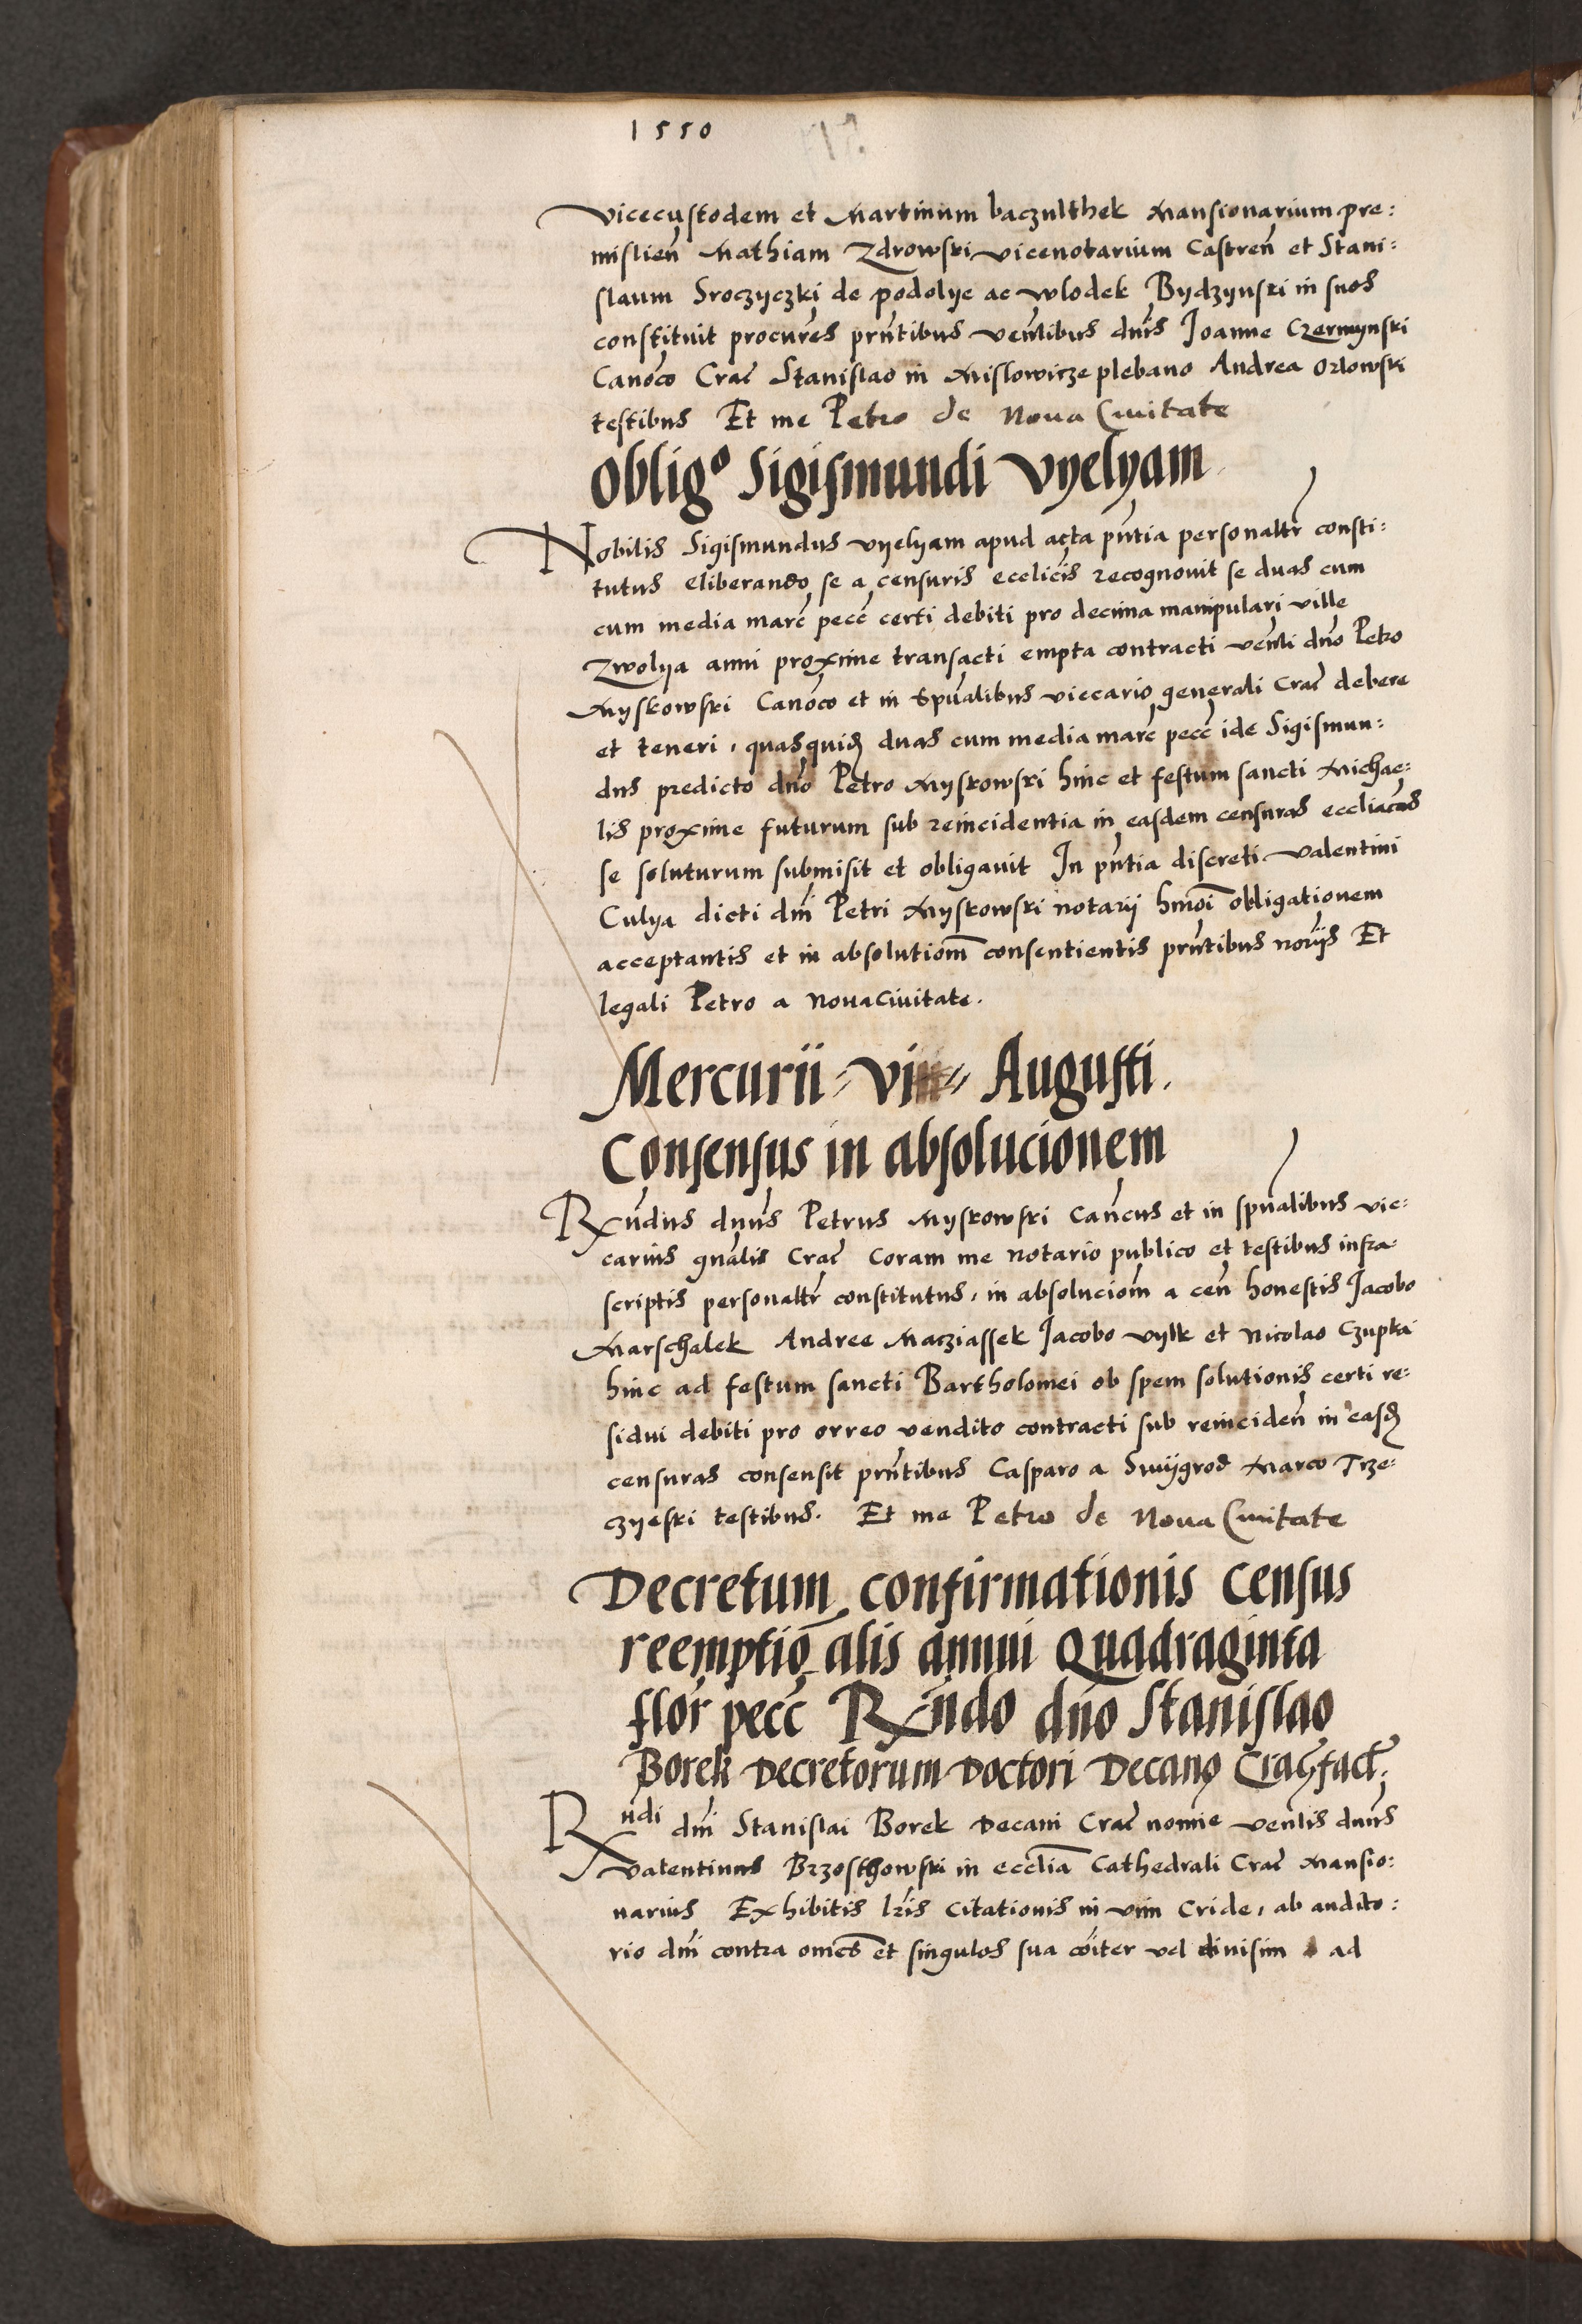 1550
vicecustodem et Martinum baczulthek Mansionarium pre:
mislien̄ Mathiam Zdrowski vicenotarium Castren̄ et Stani:
slaum Sroczyczki de podolye ac wlodek Bydzynski in suos
constituit procur̄es prn̄tibus ven̄libus dn̄is Joanne Czermynski
Canōco Crac̄ Stanislao in Mislowicze plebano Andrea Orlowski
testibus Et me Petro de Noua Ciuitate
Obligº Sigismundi Vyelyam
Nobilis Sigismundus vyelyam apud acta pn̄tia personaltr̄ consti:
tutus eliberando se a censuris ecclīcis recognouit se duas cum
cum media marc̄ pecc̄ certi debiti pro decima manipulari ville
Zwolya anni proxime transacti empta contracti ven̄li dn̄o Petro
Myskowski Canōco et in Spūalibus viccario generali Crac̄ debere
et teneri, quasquid duas cum media marc̄ pecc̄ ide Sigismun:
dus predicto dn̄o Petro Myskowski hinc et festum sancti Michae:
lis proxime futurum sub reincidentia in easdem censuras eccliācas
se soluturum submisit et obligauit In pn̄tia discreti valentini
Culya dicti dn̄i Petri Myskowski notarij hm̄oi obligationem
acceptantis et in absolutiōm consentientis prn̄tibus norijs Et
legali Petro a Nouaciuitate.
Mercurii vi Augusti.
Consensus in absolucionem
Rn̄dus dn̄us Petrus Myskowski Can̄cus et in spūalibus vic:
carius gn̄alis Crac̄ Coram me notario publico et testibus infra:
scriptis personaltr̄ constitutus, in absoluciōm a cen̄ honestis Jacobo
Marschalek Andree Macziassek Jacobo vylk et Nicolao Czupka
hinc ad festum sancti Bartholomei ob spem solutionis certi re:
sidui debiti pro orreo vendito contracti sub reinciden̄ in easd
censuras consensit prn̄tibus Casparo a Smygrod Marco Trze:
czyeski testibus. Et me Petro de Noua Ciuitate
Decretum confirmationis Census
reemptiōalis annui Quadraginta
flor̄ pecc̄ Rn̄do dn̄o Stanislao
Borek Decretorum Doctori Decano Crac̄ fact.
Rn̄di dn̄i Stanislai Borek Decani Crac̄ nomīe ven̄lis dn̄us
valentinus Brzosthowski in eccl̄ia Cathedrali Crac̄ Mansio:
narius Exhibitis lr̄is citationis in vim Cride, ab audito:
rio dn̄i contra omēs et singulos sua cōiter vel diuisim ad